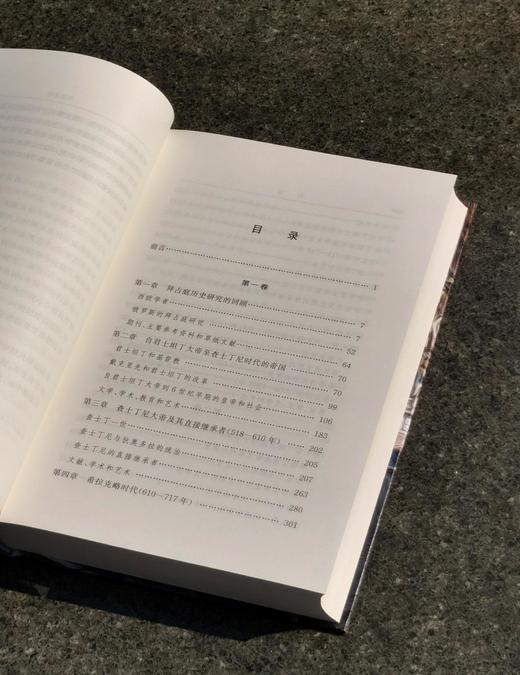 目 录
前言……1
第一卷
第一章 拜占庭历史研究的回顾……7
西欧学者……7
俄罗斯的拜占庭研究……52
期刊、主要参考资料和草纸文献……64
第二章 自君士坦丁大帝至查士丁尼时代的帝国……70
君士坦丁和基督教……70
戴克里先和君士坦丁的改革……99
自君士坦丁大帝到6世纪早期的皇帝和社会……106
文学、学术、教育和艺术……183
第三章 查士丁尼大帝及其直接继承者(518—610年)……202
查士丁一世……205
查士丁尼与狄奥多拉的统治……207
查士丁尼的直接继承者……263
文献、学术和艺术……280
第四章 希拉克略时代(610—717年)……301